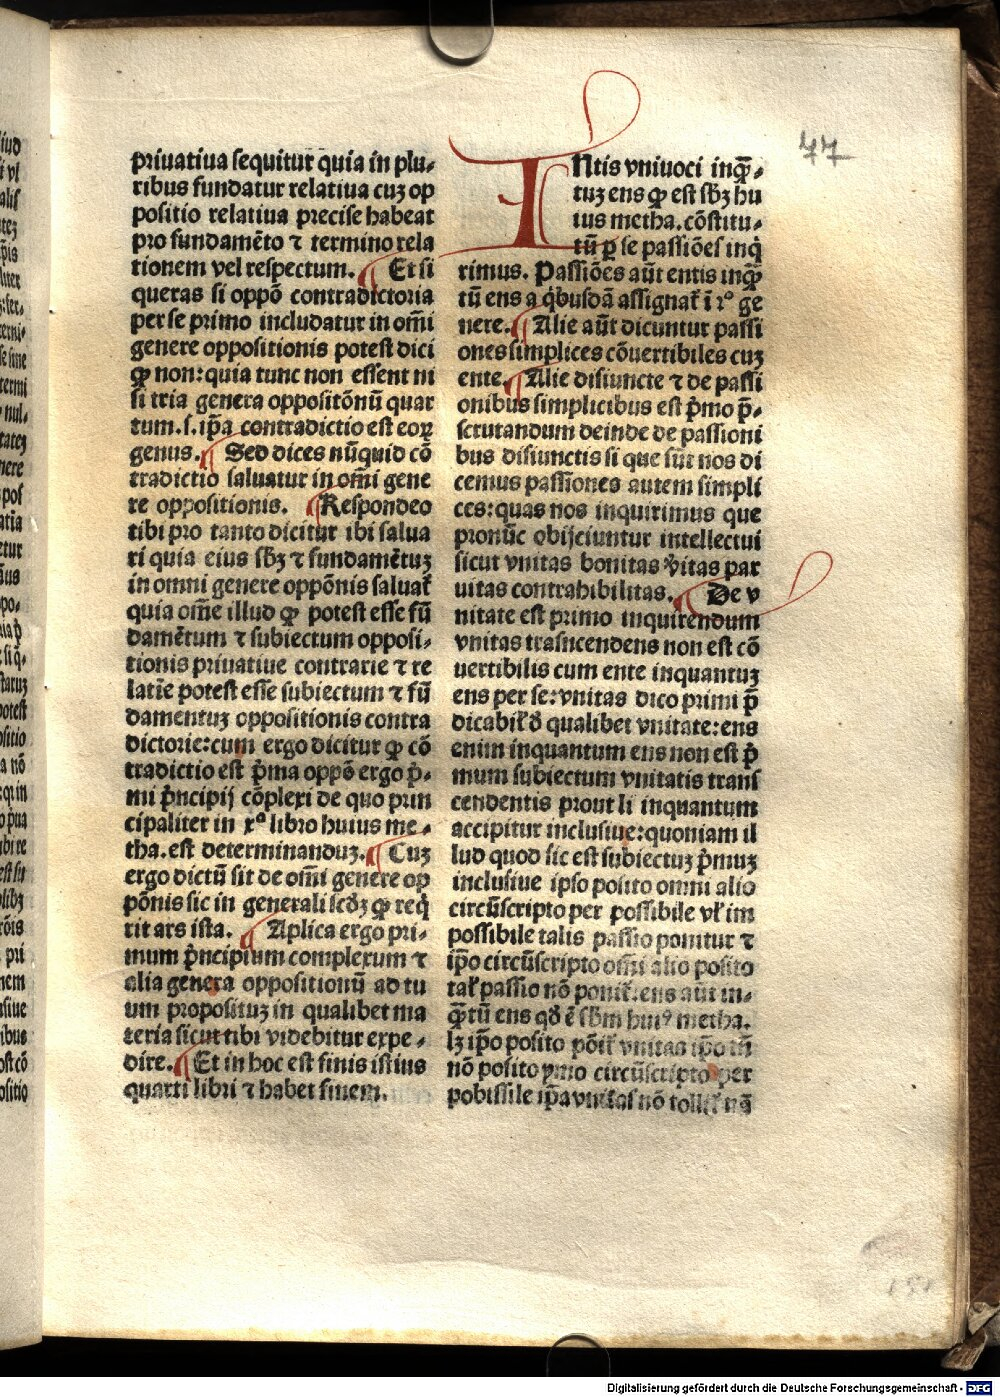 77
priuatiua sequitur quia in plu-
ribus fundatur relatiua cuʒ op
positio relatiua precise habeat
pro fundamēto ⁊ termino rela
tionem vel respectum. ¶ Et si
queras si oppō contradictoria
per se primo includatur in om̄i
genere oppositionis potest dici
ꝙ non: quia tunc non essent ni
si tria genera oppositōnū quar
tum. s. ip̄a contradictio est eoꝝ
genus. ¶ Sed dices nūquid cō
tradictio saluatur in om̄i gene
re oppositionis. ¶ Respondeo
tibi pro tanto dicitur ibi salua
ri quia eius sb̄ʒ ⁊ fundamētuʒ
in omni genere oppōnis saluat᷑
quia om̄e illud ꝙ potest esse fū
damētum ⁊ subiectum opposi-
tionis priuatiue contrarie ⁊ re
latīe potest esse subiectum ⁊ fū
damentuʒ oppositionis contra
dictorie: cum ergo dicitur ꝙ cō
tradictio est p̄ma oppō ergo p̄-
mi p̄ncipij cōplexi de quo prin
cipaliter in xº libro huius me-
tha. est determinanduʒ. ¶ Cuʒ
ergo dictū sit de om̄i genere op
pōnis sic in generali scd̄ʒ ꝙ req̄
rit ars ista. ¶ Aplica ergo pri-
mum p̄ncipium complexum ⁊
alia genera oppositionū ad tu
um proposituʒ in qualibet ma
teria sicut tibi videbitur expe-
dire. ¶ Et in hoc est finis istius
quarti libri ⁊ habet finem.
ENtis vniuoci inq̄-
tuʒ ens ꝙ est sb̄ʒ hu
ius metha. cōstitu-
tū ꝑ se passiōes inq̄
rimus. Passiōes aūt entis inq̄
tū ens a q̇busdā assignat᷑ ī 1º ge
nere. ¶ Alie aūt dicuntur passi
ones simplices cōuertibiles cuʒ
ente. ¶ Alie disiuncte ⁊ de passi
onibus simplicibus est p̄mo p̄-
scrutandum deinde de passioni
bus disiunctis si que sūt nos di
cemus passiones autem simpli
ces: quas nos inquirimus que
pronūc obijciuntur intellectui
sicut vnitas bonitas v̇itas par
uitas contrahibilitas. ¶ De v
nitate est primo inquirendum
vnitas trasncendens non est cō
uertibilis cum ente inquantuʒ
ens per se: vnitas dico primi p̄
dicabił᷑ ð qualibet vnitate: ens
enim inquantum ens non est p̄
mum subiectum vnitatis trans
cendentis prout li inquantum
accipitur inclusiue: quoniam il
lud quod sic est subiectuʒ p̄muʒ
inclusiue ipso posito omni alio
circūscripto per possibile vł im
possibile talis passio ponitur ⁊
ip̄o circūscripto om̄i alio posito
tał passio nō ponit᷑: ens aūt in-
q̄tū ens qð ē sb̄m huiꝰ metha.
lʒ ip̄o posito pōit᷑ vnitas ip̄o tn̄
nō posito ymo circūscripto per
pobissile ip̄a vnitas nō tollit᷑ nā
151
Digitalisierung gefördert durch die Deutsche Forschungsgemeinschaft - DFG